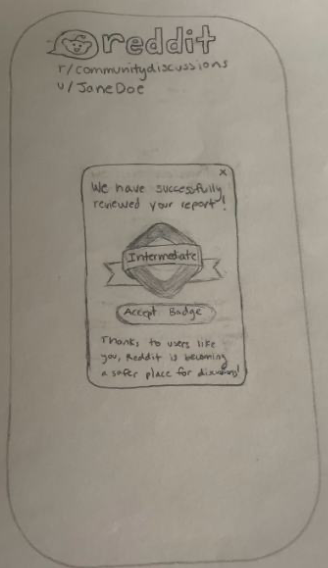 reddit
r/communitydiscussions
u/JaneDoe
x
We have successfully
reviewed your report!
Intermediate
Accept Badge
Thanks to users like
you, Reddit is becoming
a safer place for